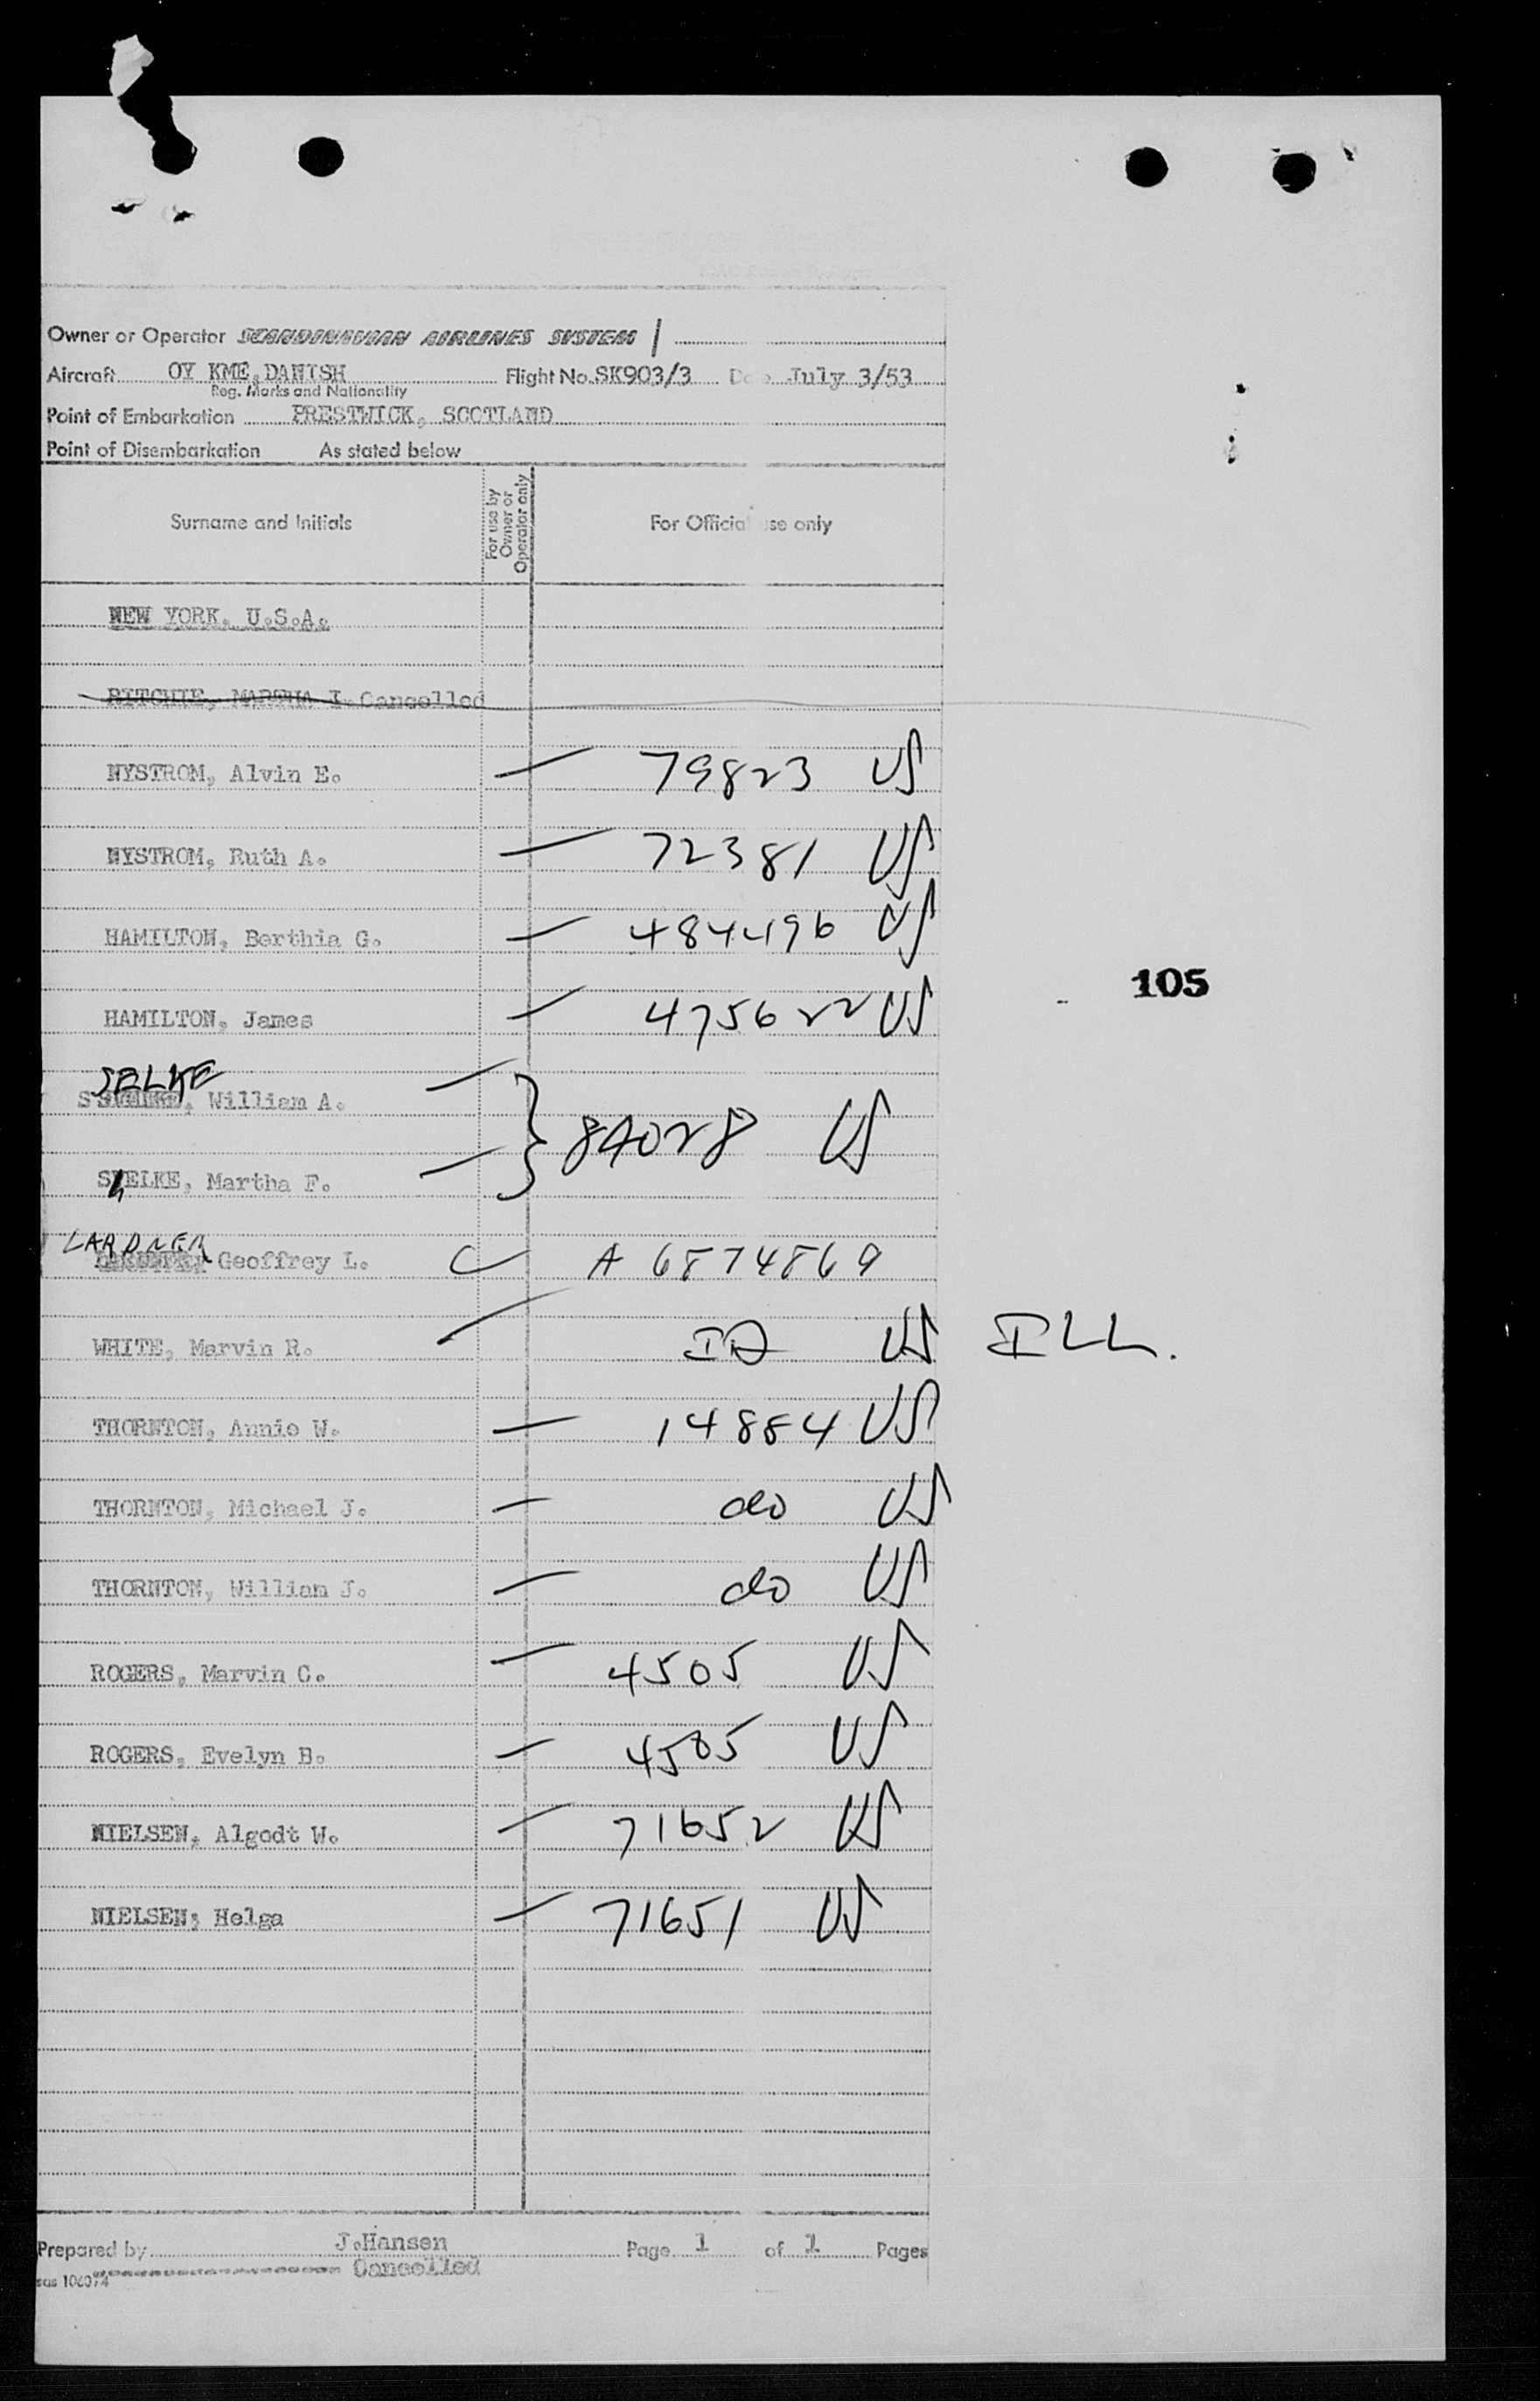 Owner or Operator SCANDINAVIAN AIRLINES SYSTEM
Aircraft OY KME, DANISH Flight No. SK903/3 July 3/53
Reg. Marks and Nationality
Point of Embarkation PRESTWICK, SCOTLAND
Point of Disembarkation As stated below
Surname and Initials For use by Owner or Operator only For Official use only
NEW YORK. U.S.A.
RITCHIE, MARTHA I. Cancelled
NYSTROM, Alvin E. — 79823 US
NYSTROM, Ruth A. — 72381 US
HAMILTON, Berthia G. — 484496 US
105
HAMILTON, James — 475622 US
SELKE
William A. —
} 84028 US
SELKE, Martha F. —
LARDNER
Geoffrey L. A 6874869
WHITE, Marvin R. US ILL.
THORNTON, Annie W. — 14884 US
THORNTON, Michael J. — do US
THORNTON, William J. — do US
ROGERS, Marvin C. — 4505 US
ROGERS, Evelyn B. — 4505 US
NIELSEN, Algodt W. — 71652 US
NIELSEN, Helga — 71651 US
Prepared by J.Hansen Page 1 of 1 Pages
Cancelled
sas 106074